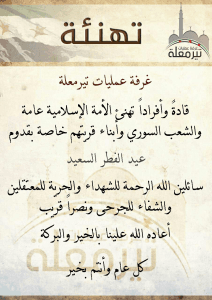 تهنئة
تيرمعلة
غرفة عمليات تيرمعلة
قادةً وأفراداً تهنئ الأمة الإسلامية عامة
والشعب السوري وأبناء قريتهم خاصة بقدوم
عيد الفطر السعيد
سائلين الله الرحمة للشهداء والحرية للمعتقلين
والشفاء للجرحى ونصراً قريب
أعاده الله علينا بالخير والبركة
كل عام وأنتم بخير